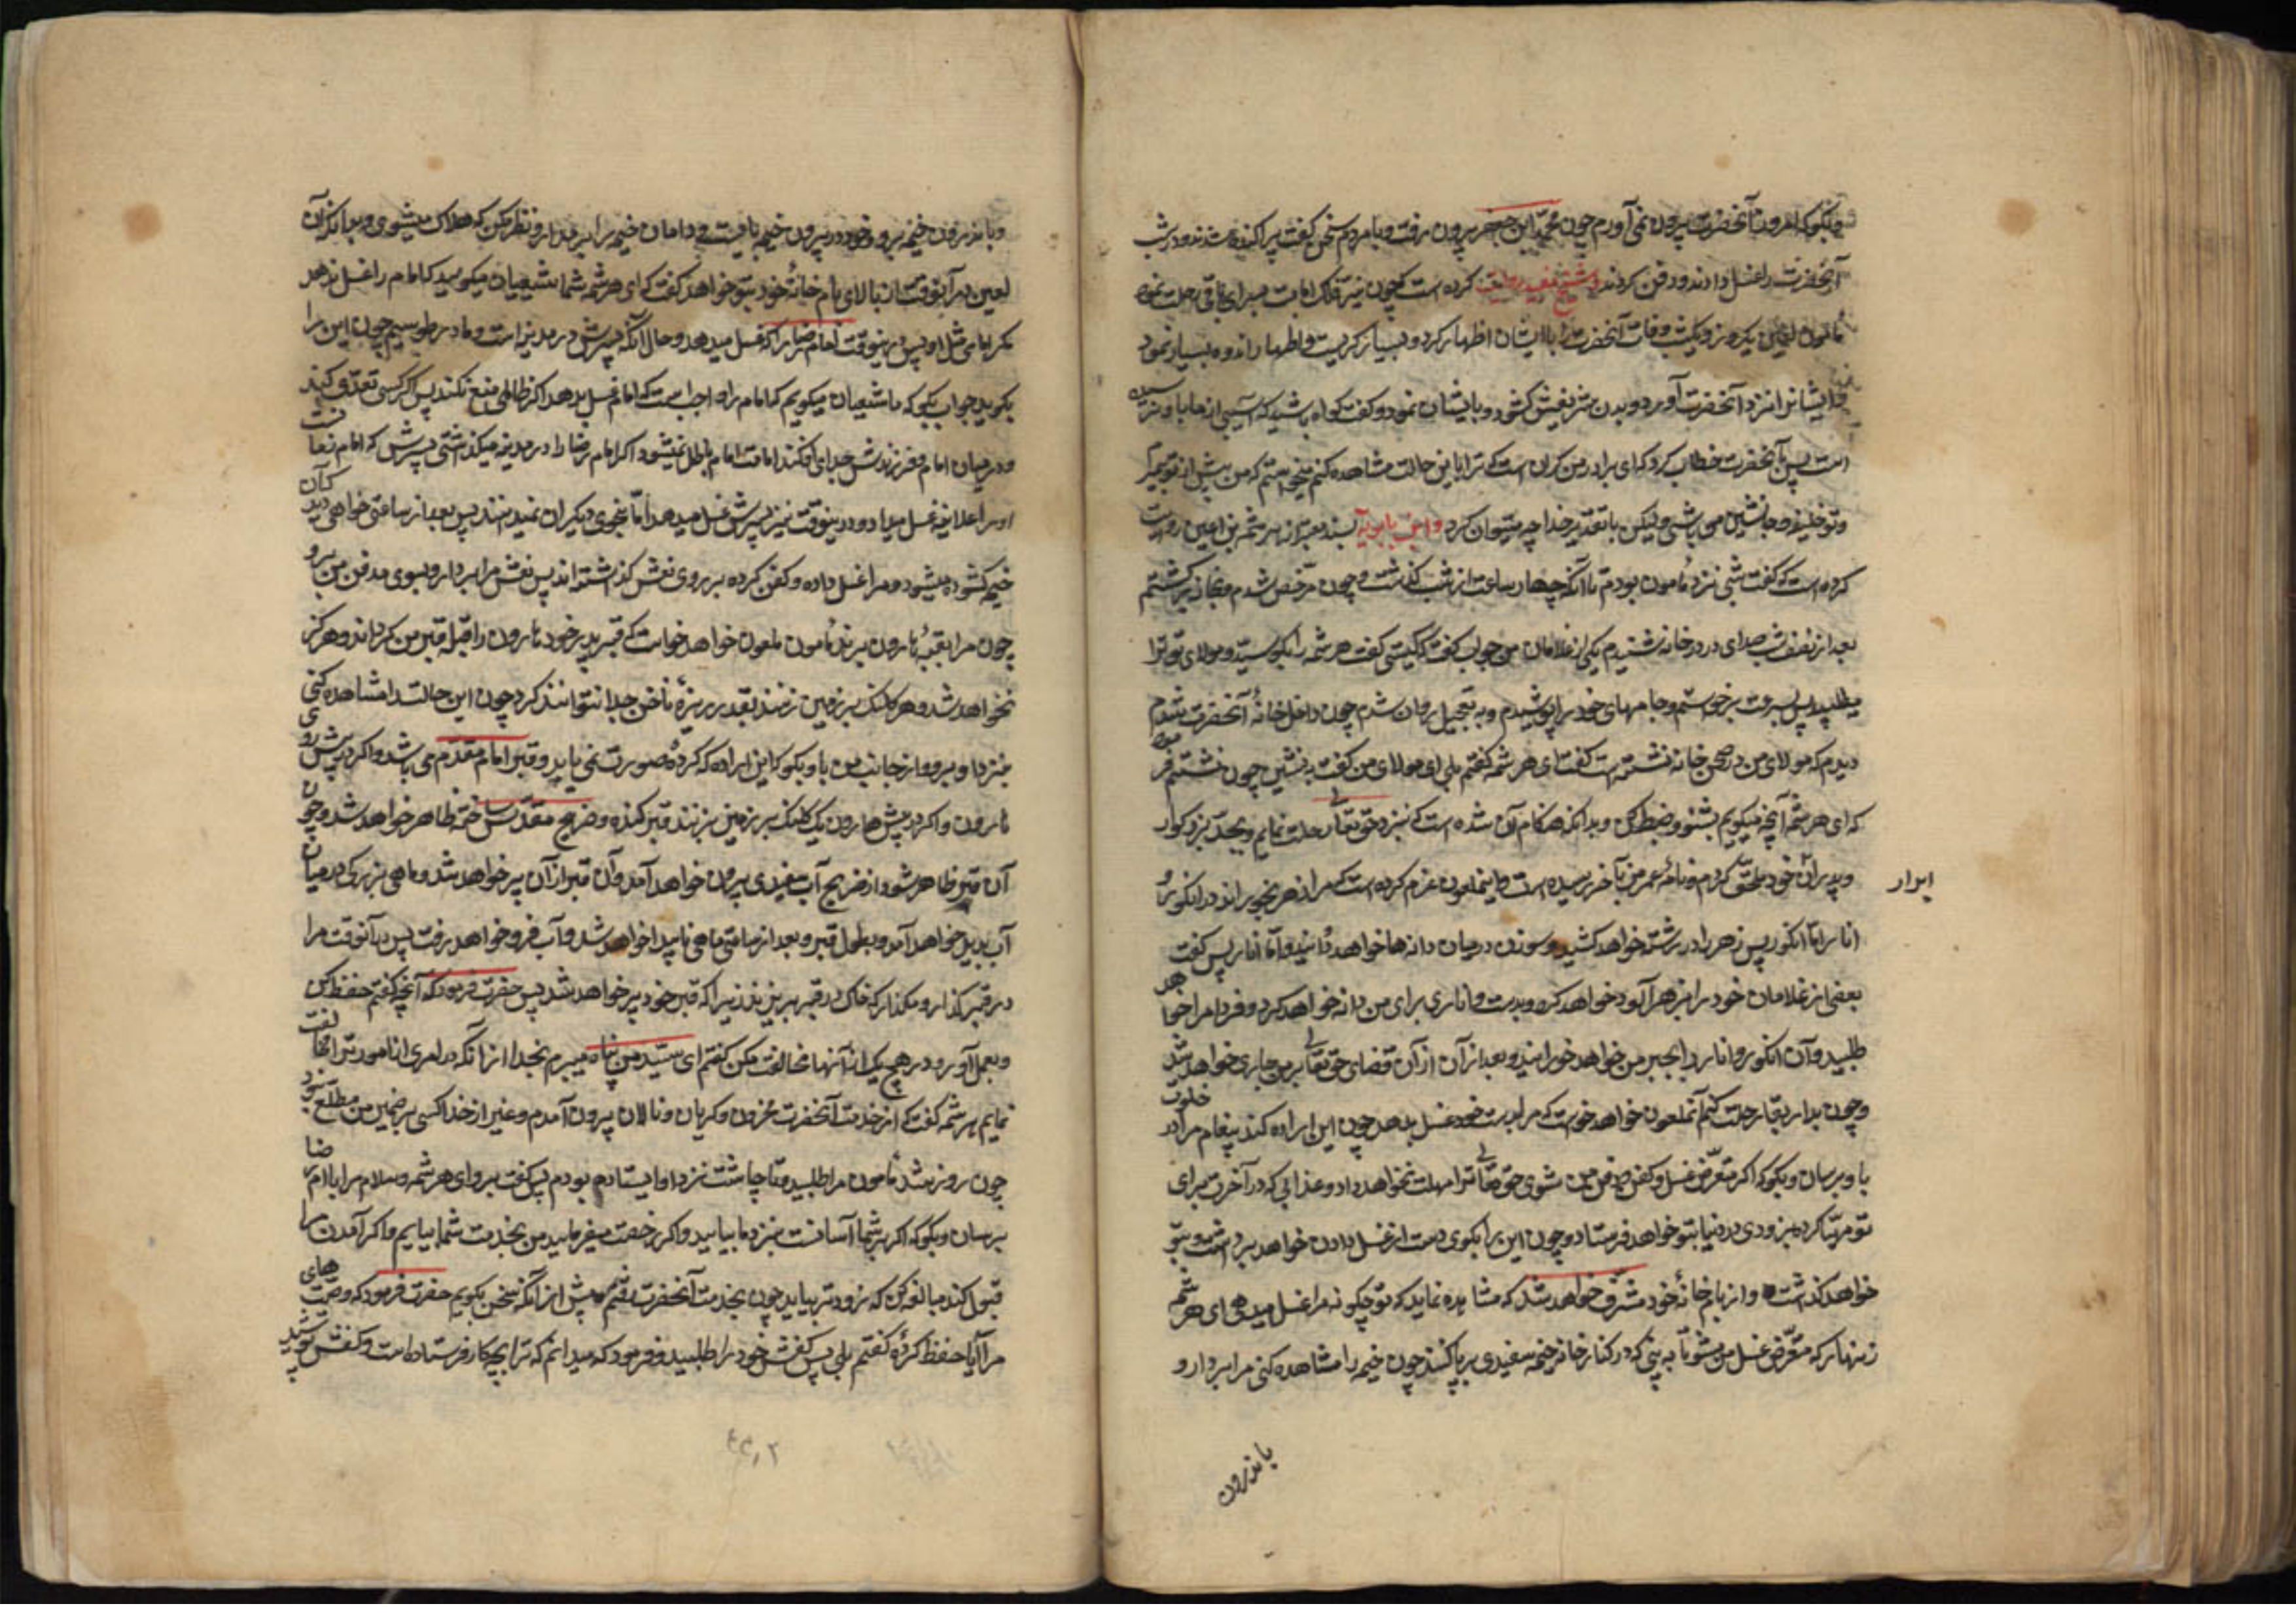 و بگو که امروز آنحضرت بیرون نمی‌آورم چون محمد ابن جعفر بیرون رفت و با مردم سخن گفت پراکنده شدند و در شب
آنحضرت را غسل دادند و دفن کردند و شیخ مفید روایت کرده است که چون نیر فلک امامت بسرای باقی رحلت نمود
مأمون لعین یکروز و یکشب وفات آنحضرت را با ایشان اظهار کرد و بسیار گریست و اظهار اندوه بسیار نمود
و ایشانرا نزد آنحضرت آورد و بدن شریفش گشود و بایشان نمود و گفت گواه باشید که آسیبی از ما باو نرسیده
است پس بآنحضرت خطاب کرد که ای برادر من گران است که ترا باین حالت مشاهده کنم میخواستم که من پیش از تو بمیرم
و تو خلیفه و جانشین من باشی ولیکن با تقدیر خدا چه میتوان کرد و ابن بابویه بسند معتبر از هرثمه بن اعین روایت
کرده است که گفت شبی نزد مأمون بودم تا آنکه چهار ساعت از شب گذشت و چون مرخص شدم و بخانه برگشتم
بعد از نصف شب صدای در خانه شنیدم یکی از غلامان من جواب گفت که کیستی گفت هرثمه را بگو سید و مولای تو ترا
میطلبد پس بسرعت برخواستم و جامهای خود را پوشیدم و به تعجیل روان شدم چون داخل خانهٔ آنحضرت شدم
دیدم که مولای من در صحن خانه نشسته است گفت ای هرثمه گفتم بلی ای مولای من گفت بنشین چون نشستم فرمود
که ای هرثمه آنچه میگویم بشنو و ضبط کن و بدانکه هنگام آن شده است که نزد حق تعالی رحلت نمایم و بجد بزرگوار
و پدران خود ملحق گردم و نامهٔ عمر من بآخر رسیده است و مأمون عزم کرده است که مرا زهر بخوراند در انگور و
انار اما انگور پس زهر را در رشته خواهد کشید و سوزن در میان دانه‌ها خواهد دوانید و اما انار پس کفت
بعضی از غلامان خود را زهر آلود خواهد کرد و بدست او اناری برای من دانه خواهد کرد و فردا مرا خواهد
طلبید و آن انگور و انار را بجبر من خواهد خورانید و بعد از آن قضای حق تعالی بر من جاری خواهد شد
و چون بدار بقا رحلت کنم آنملعون خواهد خواست که مرا بدست خود غسل بدهد چون این اراده کند پیغام مرا در خلوت
باو برسان و بگو که اگر متعرض غسل و کفن و دفن من شوی حق تعالی ترا مهلت نخواهد داد و عذابی که در آخرت برای
تو مهیا کرده بزودی در دنیا بتو خواهد فرستاد و چون این را بگوی دست از غسل دادن خواهد برداشت و بتو
خواهد گذاشت و از بام خانهٔ خود مشرف خواهد شد که مشاهده نماید که تو چگونه مرا غسل میدهی ای هرثمه
زنهار که متعرض غسل من مشو تا به بینی که در کنار خانه خیمهٔ سفیدی برپا کنند چون خیمه را مشاهده کنی مرا بردار و
باندرون
ابرار
و باندرون خیمه برو و خود در بیرون خیمه بایست و دامان خیمه را بر مدار و نظر مکن که هلاک میشوی و بدانکه آن
لعین در آنوقت از بالای بام خانهٔ خود بتو خواهد گفت که ای هرثمه شما شیعیان میگویید که امام را غسل ندهد
مگر امامی مثل او پس در اینوقت امام رضا را که غسل میدهد و حال آنکه پسرش در مدینه است و ما در طوسیم چون این را
بگوید جواب بگو که ما شیعیان میگویم که امام را واجب است که امام غسل بدهد اگر ظالمی منع نکند پس اگر کسی تعدی کند
و در میان امام و فرزندش جدایی افکند امامت امام باطل نمیشود اگر امام رضا را در مدینه میگذاشتی پسرش که امام زمانست
او را علانیه غسل میداد و در اینوقت نیز پسرش غسل میدهد اما بنحوی که دیگران نمیدانند پس بعد از ساعتی خواهی دید که آن
خیمه گشوده میشود و مرا غسل داده و کفن کرده بر روی نعش گذاشته‌اند پس نعش مرا بردار و بسوی مدفن من برو
چون مرا بقبهٔ هارون برند مأمون ملعون خواهد خواست که قبر پدر خود هارون را قبلهٔ قبر من گرداند و هرگز
نخواهد شد و هر کلنک بر زمین زنند بقدر ریزهٔ ناخن جدا نتوانند کرد چون این حالت را مشاهده کنی
نزد او برو و از جانب من باو بگو که این اراده که کردهٔ صورت نمی‌یابد و قبر امام مقدم می‌باشد و اگر در پیش روی
هارون و اگر در پیش هارون یک کلنک بر زمین بزنند قبر کنده و ضریح مقدس ساخته ظاهر خواهد شد و چون
آن قبر ظاهر شود از ضریح آب سفیدی بیرون خواهد آمد و آن قبر از آن پر خواهد شد و ماهی بزرگی در میان
آب پدید خواهد آمد و بطول قبر و بعد از ساعتی ماهی ناپیدا خواهد شد و آب فرو خواهد رفت پس در آنوقت مرا
در قبر گذار و مگذار که خاک در قبر بریزند زیرا که قبر خود پر خواهد شد پس حضرت فرمود که آنچه گفتم حفظ کن
و بعمل آور و در هیچ یک از آنها مخالفت مکن گفتم ای سید من پناه میبرم بخدا از آنکه در امری از امور ترا مخالفت
نمایم هرثمه گفت که از خدمت آنحضرت محزون و گریان و نالان بیرون آمدم و غیر از خدا کسی بر ضمیر من مطلع نبود
چون روز شد مأمون مرا طلبید و تا چاشت نزد او ایستاده بودم پس گفت برو ای هرثمه و سلام مرا با امام رضا
برسان و بگو که اگر بر شما آسانست نزد ما بیایید و اگر رخصت میفرمایید من بخدمت شما بیایم و اگر آمدن را
قبول کند مبالغه کن که زودتر بیاید چون بخدمت آنحضرت رفتم پیش از آنکه سخن بگویم حضرت فرمود که وصیت‌های
مرا آیا حفظ کردهٔ گفتم بلی پس کفش خود را طلبید و فرمود که میدانم که ترا بچه کار فرستاده است و کفش پوشید